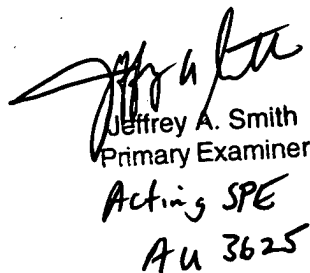 Jeffrey A. Smith
Primary Examiner
Acting SPE
AU 3625